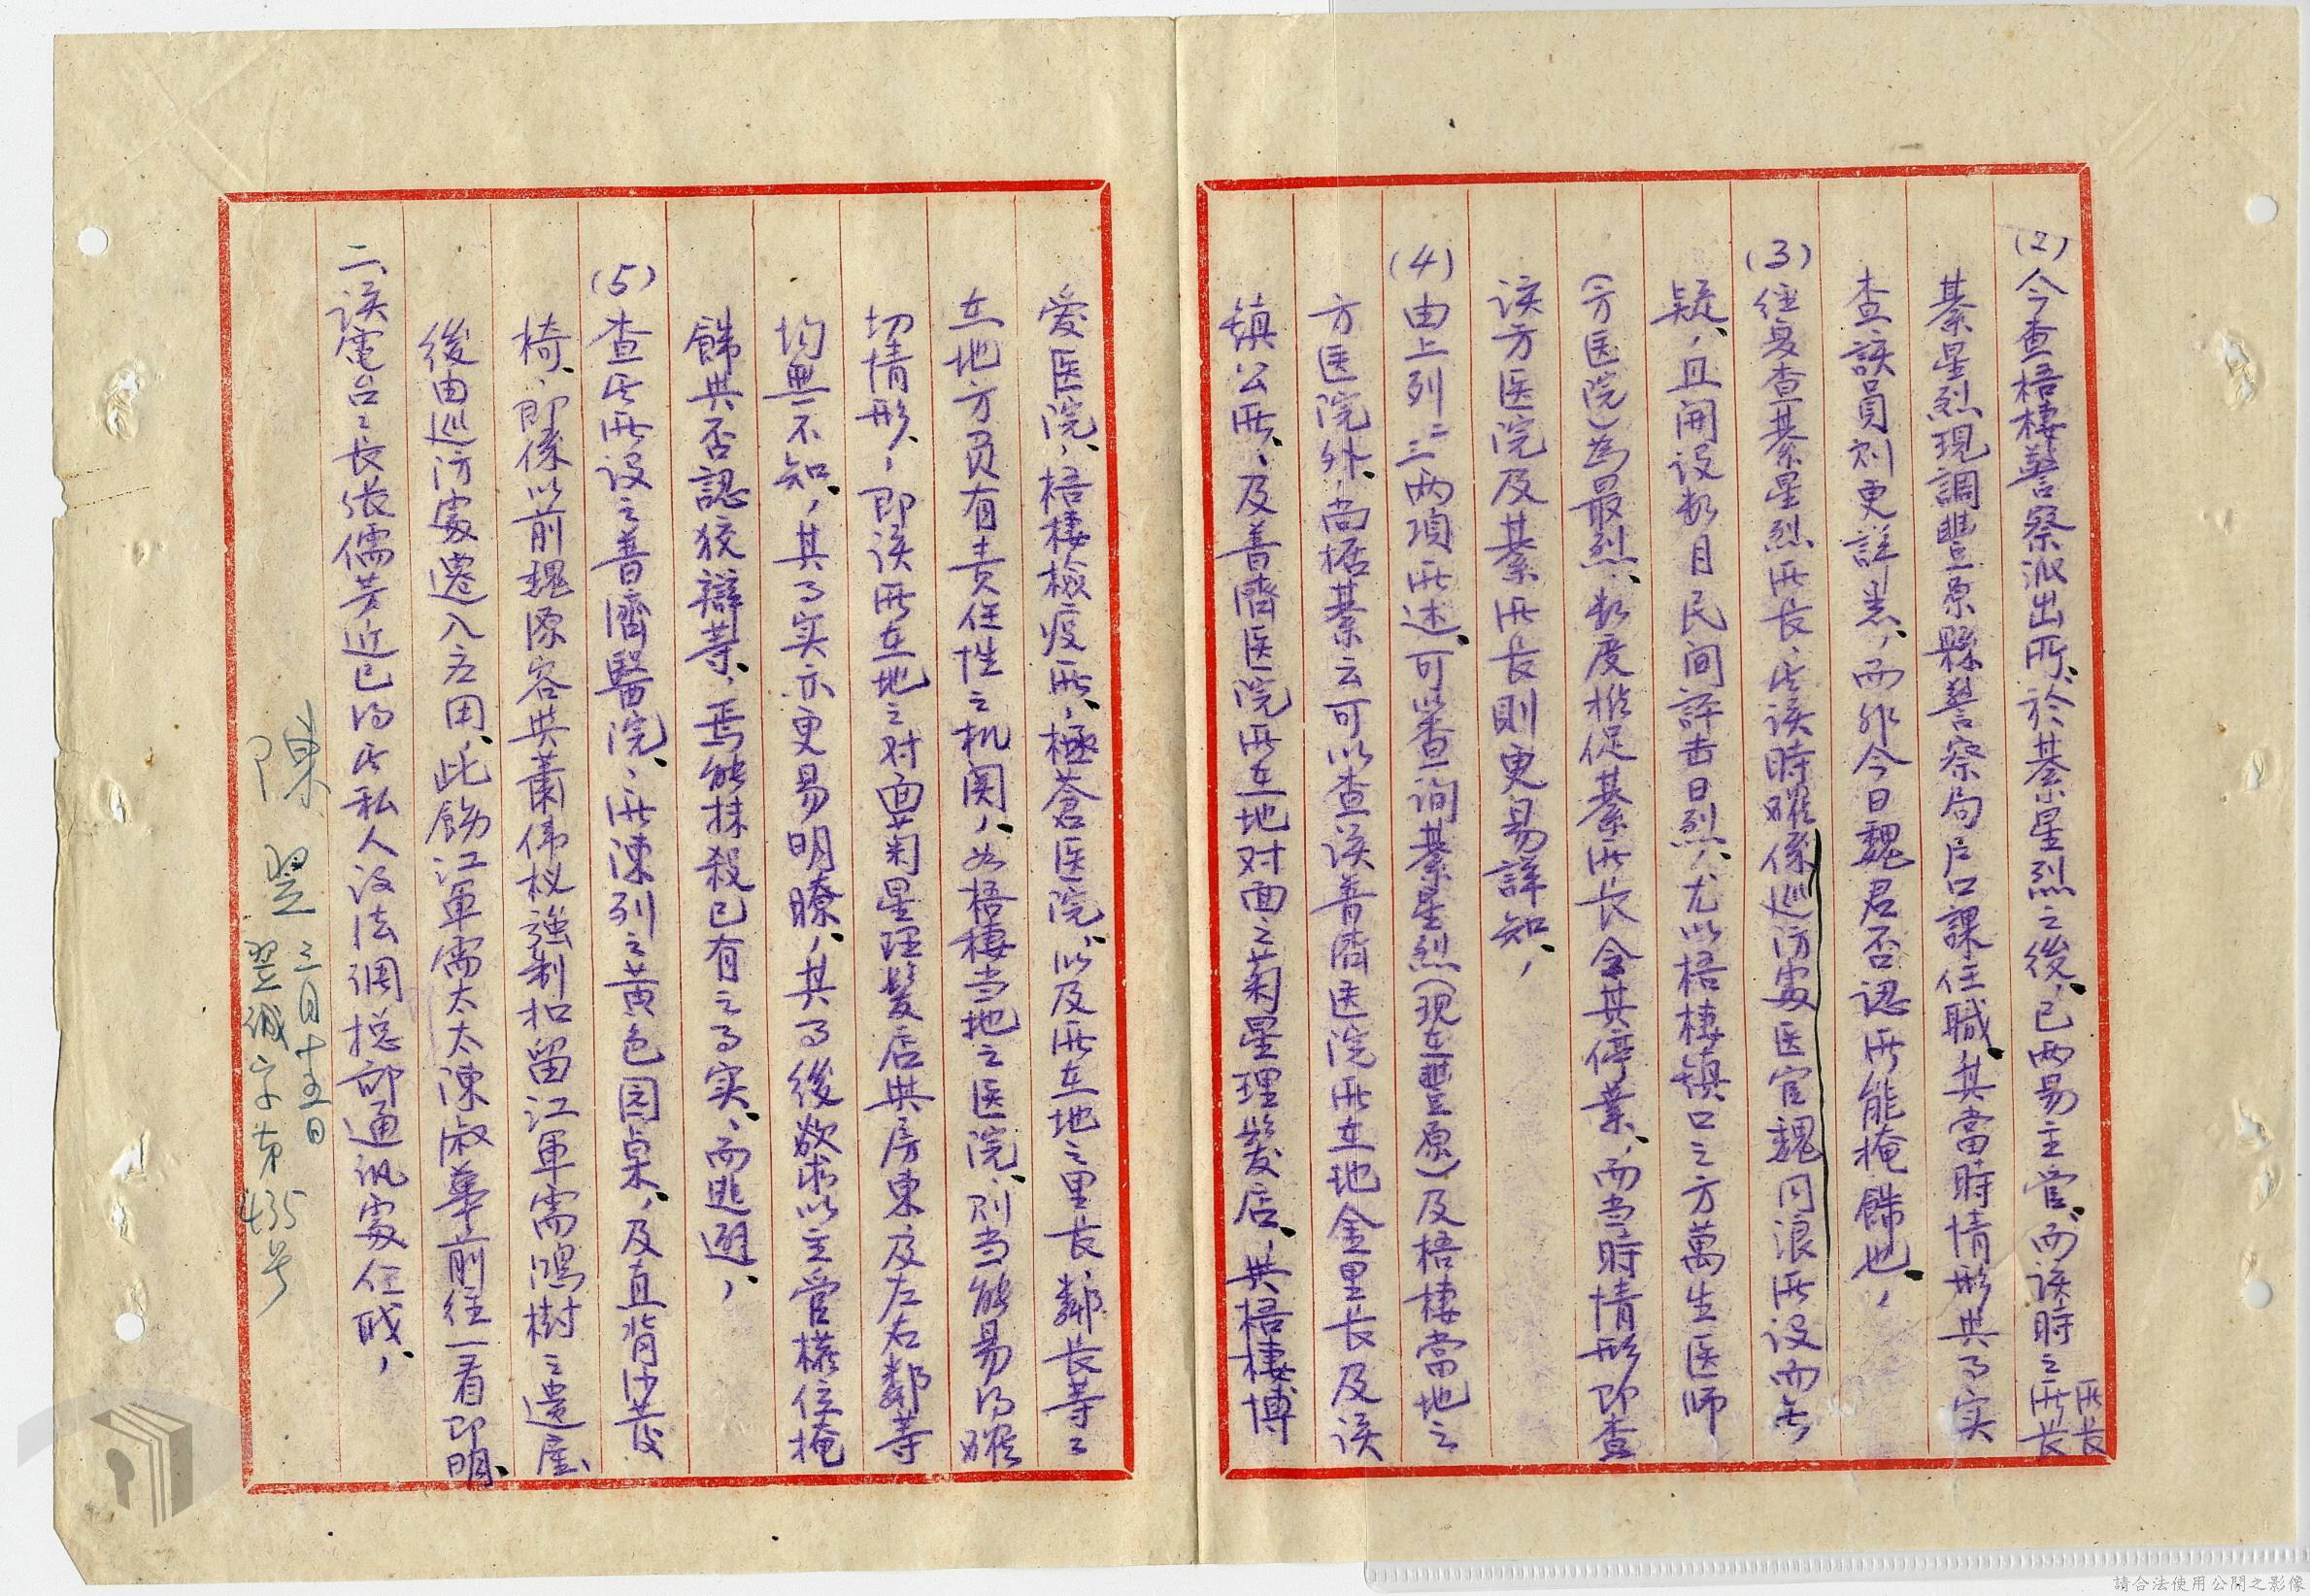 (2)今查梧棲警察派出所、於綦星烈之後、已兩易主官、而该時之所長
所长
綦星烈現調豐原縣警察局户口課任職、其當時情形與事实
查该員則更詳悉、而非今日魏君否認所能掩餙也、
(3)經复查綦星烈所長、此该時確係巡防處医官魏同浪所设而無
疑、且開设数月民间評击日烈、尤以梧棲镇口之方萬生医师
(方医院)為最烈、数度推促綦所长令其停業、而当時情形即查
该方医院及綦所长則更易詳知、
(4)由上列二三两項所述、可以查询綦星烈(現在豐原)及梧棲當地之
方医院外、尚据綦云可以查该普濟医院所在地金里长及该
镇公所、及普濟医院所在地对面之菊星理髮店、與梧棲博
爱医院、梧棲檢疫所、極蒼医院、以及所在地之里长鄰长等之
在地方员有责任性之机関、如梧棲当地之医院、則当能易得確
切情形、即该所在地之对面菊星理髮店與房東及左右鄰等
均無不知、其事实亦更易明瞭、其事後欲求以主管權位掩
餙與否認狡辯等、焉能抹殺已有之事实、而逃避、
(5)查此所设之普濟醫院、所陳列之黄色园桌、及直背沙发
椅、即係以前魏深容與蕭伟权強制扣留江軍需鴻樹之遷屋、
後由巡防處遷入应用、此飭江軍需太太陳淑華前往一看即明、
二、该電台之长张儒芳近已得此私人设法调總部通訊處任职、
陳 翌 三月十五日
翌緘字第435号
請合法使用公開之影像